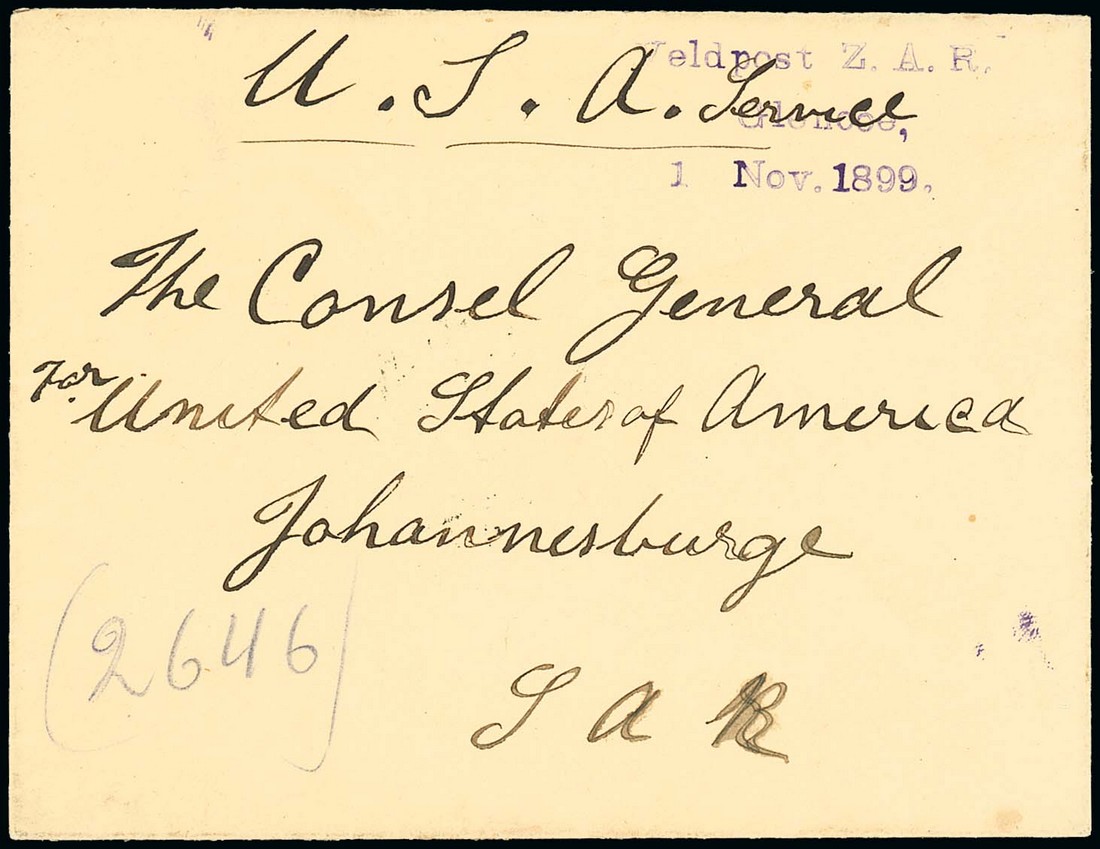 U. S. A. Service
Veldpost Z. A. R.
Glencoe,
1 Nov. 1899.
The Consel General
For United States of America
Johannesburge
S A R
(2646)